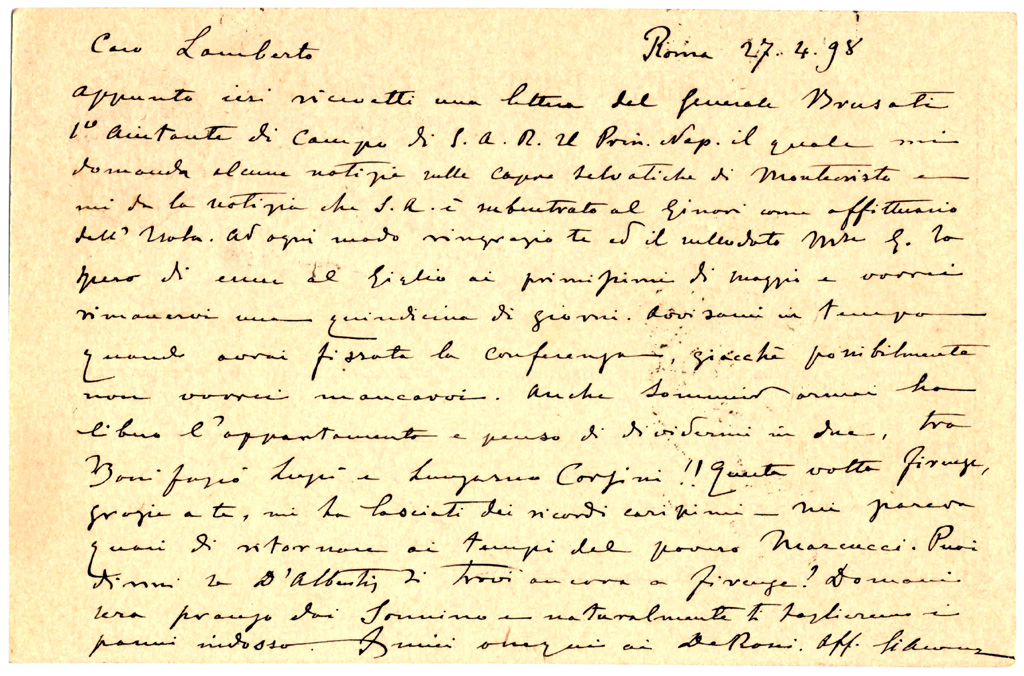 Caro Lamberto Roma 27.4.98
Appunto ieri ricevetti una lettera del Generale Brusati
1º Aiutante di Campo di S. A. R. il Prin. Nap. il quale mi
domanda alcune notizie sulle capre selvatiche di Montecristo e
mi da la notizia che S. A. è subentrato al Ginori come affittuario
dell' Isola. Ad ogni modo ringrazio te ed il sullodato Mse G. Io
spero di esser al Giglio ai primissimi di maggio e vorrei
rimanervi una quindicina di giorni. Avvisami in tempo
quando avrai fissata la conferenza, giacchè possibilmente
non vorrei mancarvi. Anche Sommier ormai ha
libero l'appartamento e penso di dividermi in due, tra
Bonifazio Lupi e Lungarno Corsini!! Questa volta Firenze,
grazie a te, mi ha lasciati dei ricordi carissimi — mi pareva
quasi di ritornare ai tempi del povero Marcucci. Puoi
dirmi se D'Albertis si trovi ancora a Firenze? Domani
sera pranzo dai Sonnino e naturalmente ti taglieremo i
panni indosso. ossequi ai De Rossi. Aff.